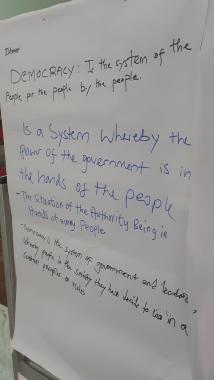 DEMOCRACY: Is the system of the
People for the people by the people.
Is a System Whereby the
Power of the government is in
the hands of the people
- The Situation of the Authority Being in
Hands of many People
- Democracy is the system of government and leaders
Whereby people in the society they have decide to live in a
Certain principles or rules